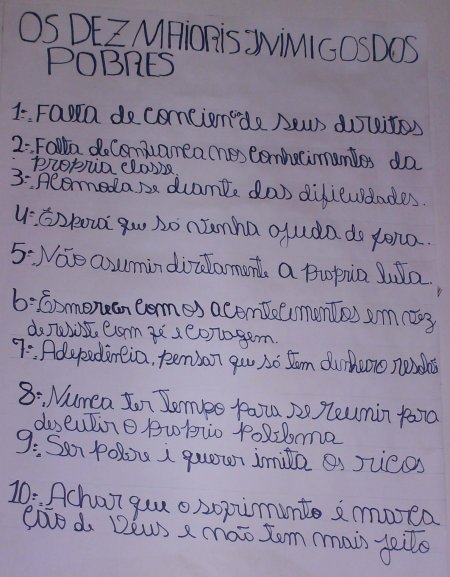 OS DEZ MAIORIS INIMIGOS DOS
POBRES
1-. Falta de conciencia de seus direitos
2-. Falta de confianca nos conhecimentos da
propria classe.
3-. Acomoda se diante das dificuldades.
4-. Esperá que só venha ajuda de fora.
5-. Não asumir diretamente a propria luta.
6-. Esmorecer com os acontecimentos em vez
de resisti com fé e coragem.
7-. A depedência, pensar que só tem dinheiro resolve
8-. Nunca ter tempo para se reunir para
descutir o proprio poblema
9-. Ser pobre i querer imita os ricos
10-. Achar que o sofrimento é marca
ção de Deus e não tem mais jeito